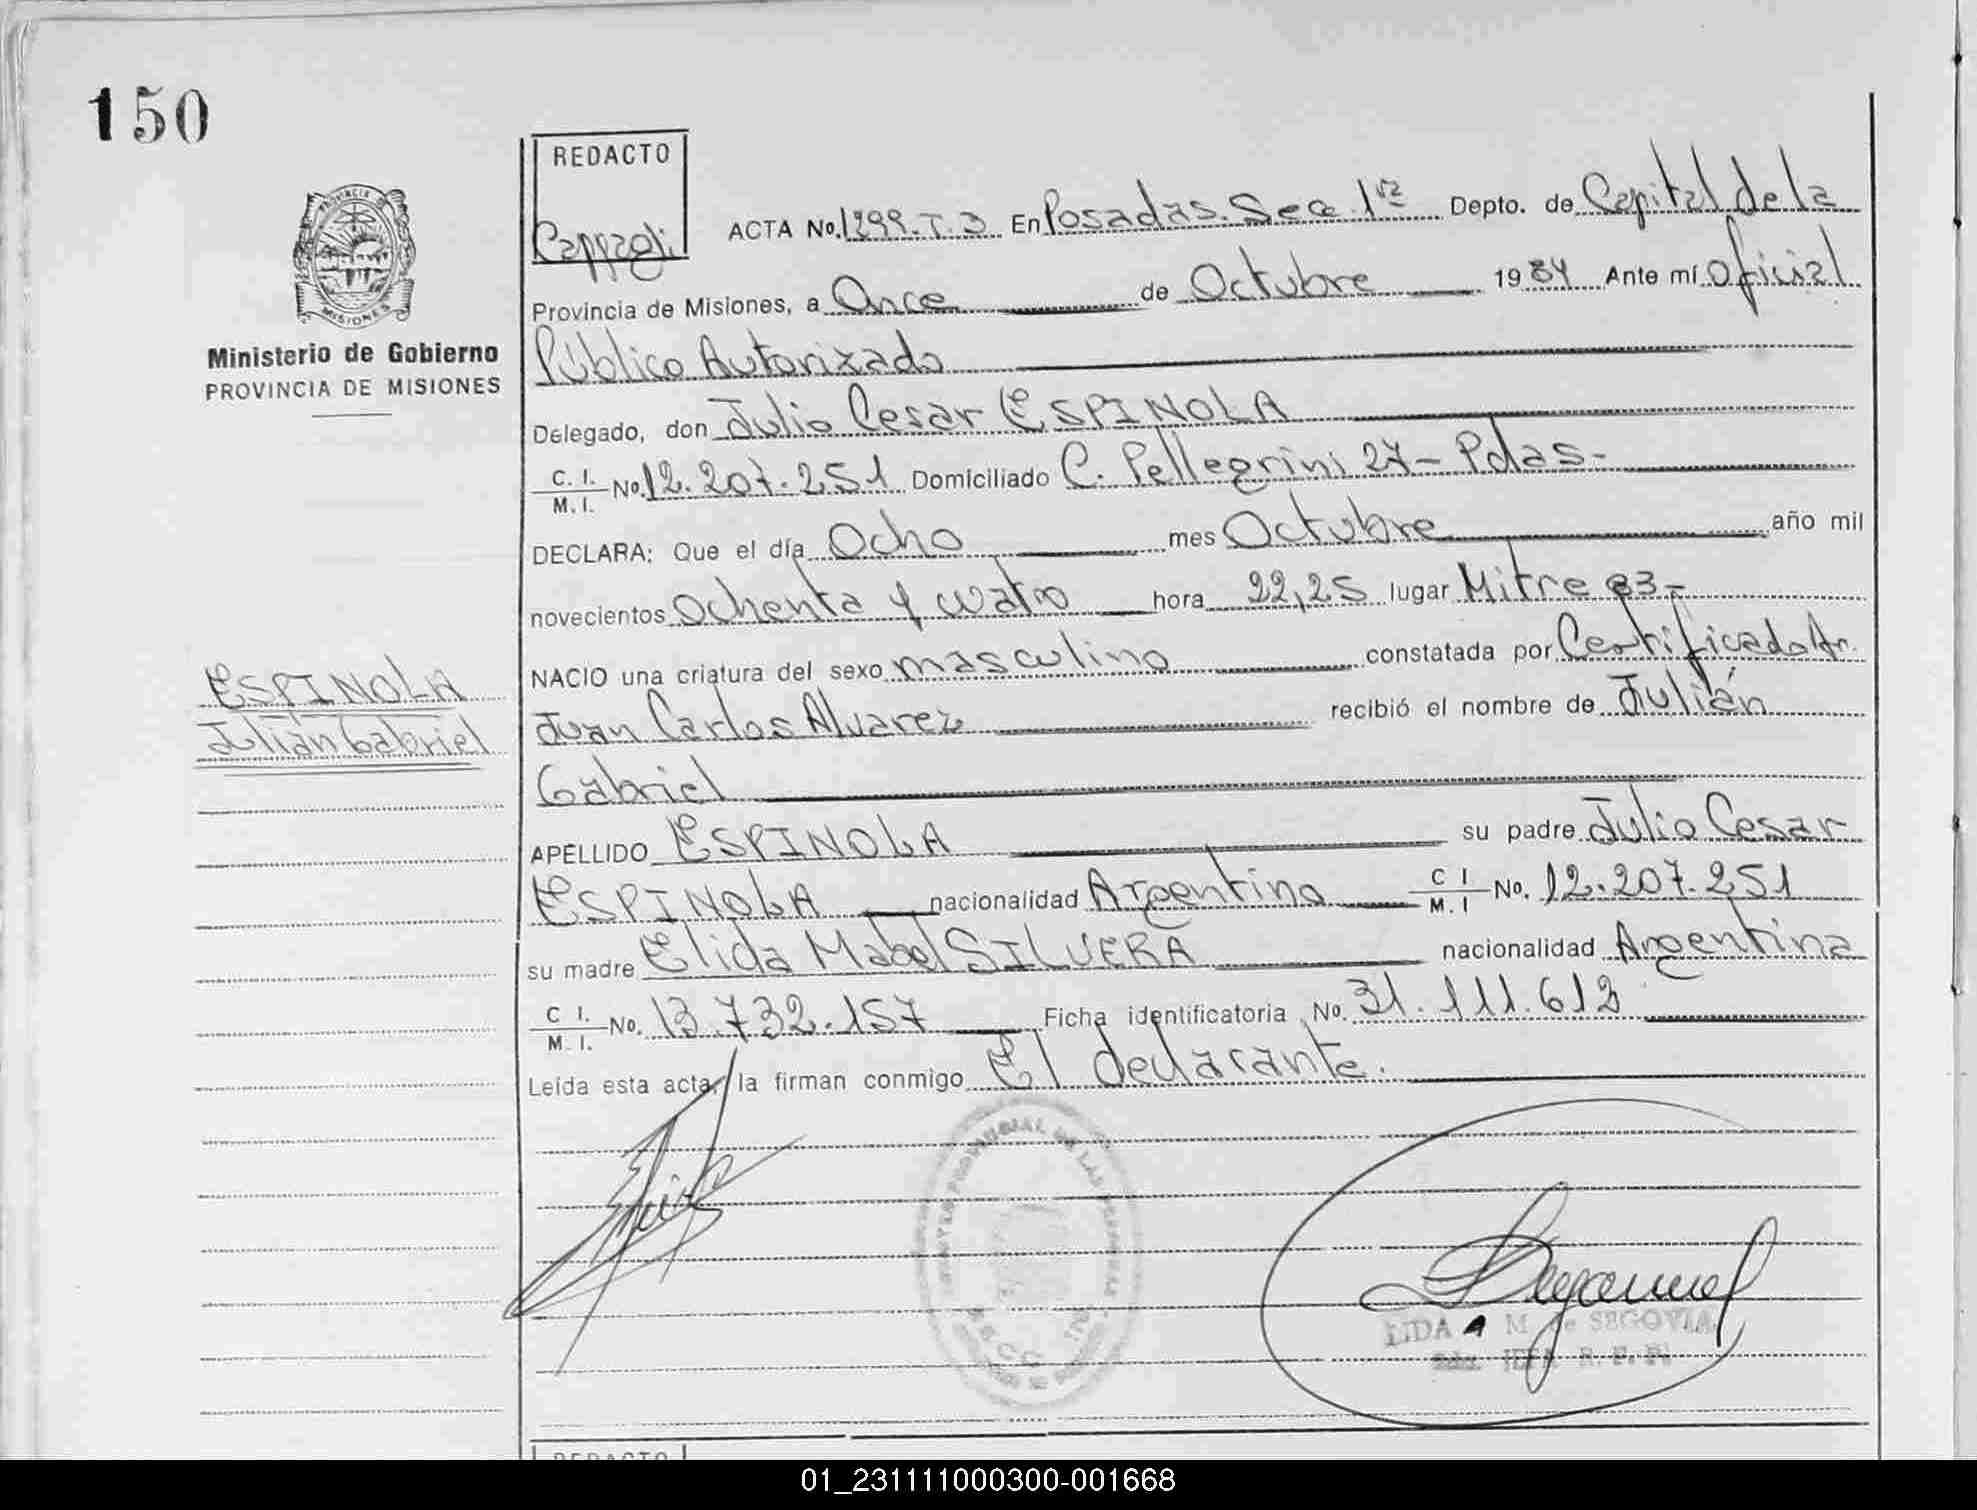 150
REDACTO
ACTA No. 1299. T. 3 En Posadas. Sec. 1ra Depto. de Capital de la
PROVINCIA DE MISIONES
Provincia de Misiones, a Once de Octubre 1984 Ante mí Oficial
Ministerio de Gobierno
PROVINCIA DE MISIONES
Público Autorizado
Delegado, don Julio Cesar ESPINOLA
C. I. M. I. No. 12.207.251 Domiciliado C. Pellegrini 27 - Pdas -
DECLARA: Que el día Ocho mes Octubre año mil
novecientos Ochenta y cuatro hora 22,25 lugar Mitre 83 -
NACIO una criatura del sexo masculino constatada por Certificado Dr.
ESPINOLA
Julián Gabriel
Juan Carlos Alvarez recibió el nombre de Julián
Gabriel
APELLIDO ESPINOLA su padre Julio Cesar
ESPINOLA nacionalidad Argentino C I M. I No. 12.207.251
su madre Elida Mabel SILVERA nacionalidad Argentina
C I. M. I. No. 13.732.157 Ficha identificatoria No. 31.111.612
Leída esta acta, la firman conmigo El declarante.
LIDA A M de SEGOVIA
JEFA R. P. P.
REDACTO
01_231111000300-001668